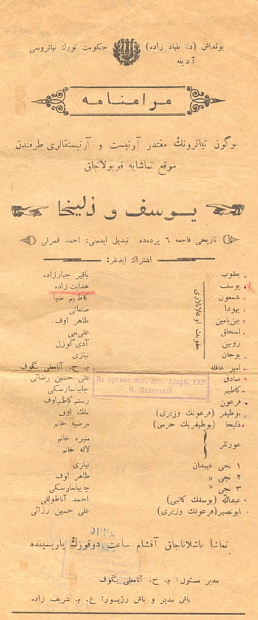 یولداش (د. بنیاد زاده) حکومت تورک تیاتروسی
آدینه
مرامنامه
بوگون تیاترونک مقتدر آرتیست و آرتیستقالری طرفندن
موقع تماشایه قویولاجاق
یوسف و زلیخا
تاریخی فاجعه ٦ پرده‌ده تبدیل ایده‌نی: احمد قمرلی
اشتراك ایدەلر:
یعقوب باقر جبارزاده
یوسف هدایت زاده
شمعون کاظم ضیا
یهودا صنعانی
بن‌یامین طاهر اوف
اسحاق علی‌بی
روبین آدی‌گوزل
یوحان نیازی
یعقوبك اوغلانلاری
امیر قافله م. ح. آتاملی بگوف
صادق علی حسین رضائی
کاظیم جاپیاسارسکی
فرعون رستم کاظم‌اوف
بوطیفر (فرعونك وزیری) ملك اوف
زلیخا (بوطیفریك حرمی) مرضیه خانم
عورتلر منیره خانم
لاله خانم
۱ نجی غیبدان نیازی
۲ نجی » طاهر اوف
۳ نجی » جاپیاسارسکی
عبدالله (یوسفك کاتبی) احمد آناطوللی
ابونصیر (فرعونك وزیری) علی حسین رزائی
Из архива нар. арт. Азерб. ССР
تماشا باشلاناجاق آقشام ساعت دوقوزك یاریسینده
مدیر مسئول: م. ح. آتاملی بگوف
باش مدیر و باش رژیسور: ع. م. شریف زاده